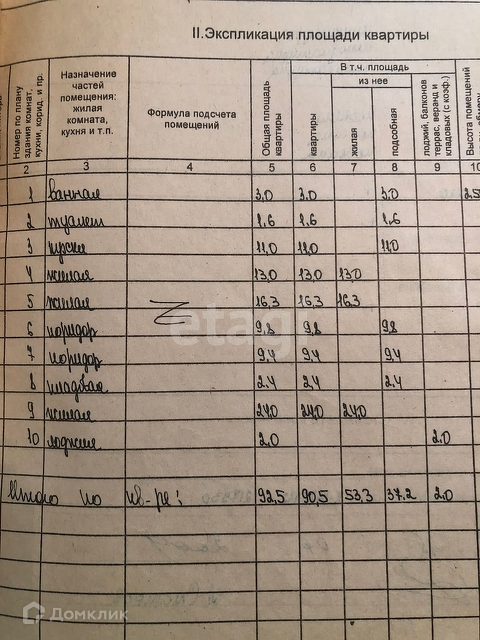 II.Экспликация площади квартиры
Номер по плану здания комнат, кухни, корид. и пр.
Назначение частей помещения: жилая комната, кухня и т.п.
Формула подсчета помещений
Общая площадь квартиры
В т.ч. площадь
из нее
квартиры
жилая
подсобная
лоджий, балконов террас, веранд и кладовых (с коэф.)
Высота помещений
2 3 4 5 6 7 8 9 10
1 ванная 3,0 3,0 3,0 2,5
2 туалет 1,6 1,6 1,6
3 кухня 11,0 11,0 11,0
4 жилая 13,0 13,0 13,0
5 жилая 16,3 16,3 16,3
6 коридор 9,8 9,8 9,8
7 коридор 9,4 9,4 9,4
8 кладовая 2,4 2,4 2,4
9 жилая 24,0 24,0 24,0
10 лоджия 2.0 2.0
Итого по кв-ре: 92,5 90,5 53,3 37,2 2.0
etagi
Домклик